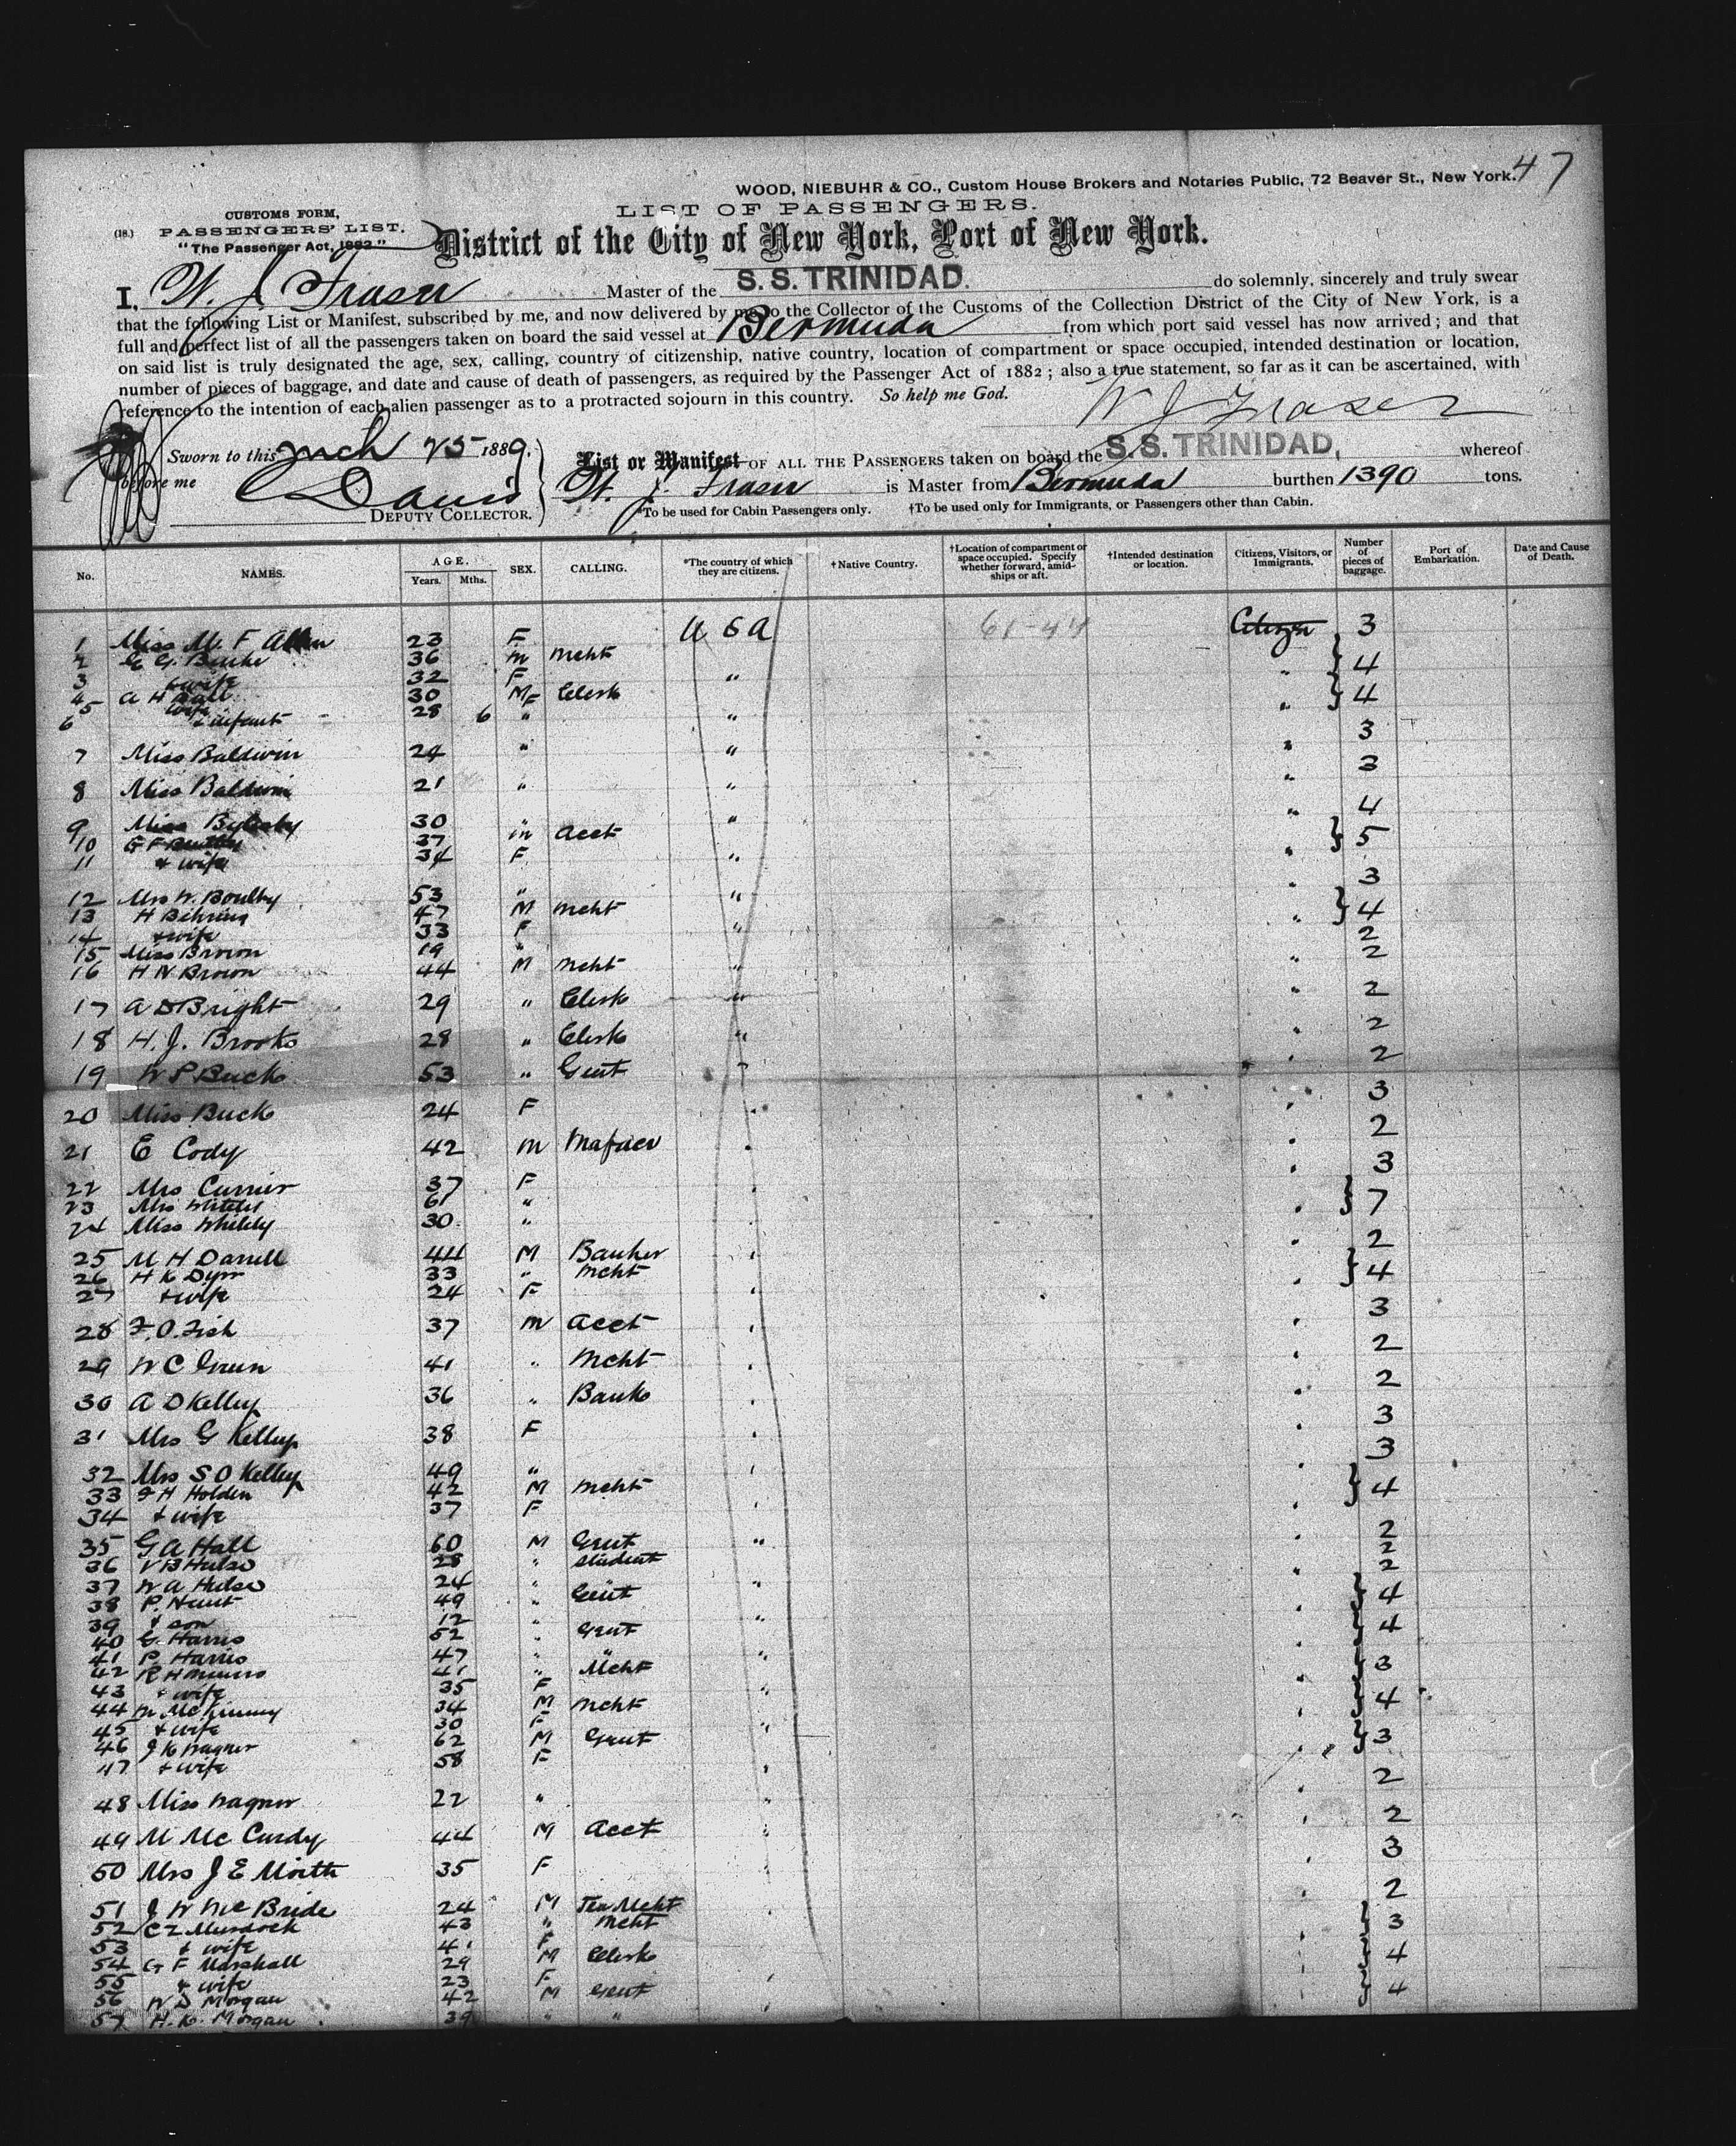 47
WOOD, NIEBUHR & CO., Custom House Brokers and Notaries Public, 72 Beaver St., New York.
LIST OF PASSENGERS.
CUSTOMS FORM,
(18.) PASSENGERS' LIST.
"The Passenger Act, 1882."
District of the City of New York, Port of New York.
I, W. J. Fraser Master of the S. S. TRINIDAD. do solemnly, sincerely and truly swear
that the following List or Manifest, subscribed by me, and now delivered by me to the Collector of the Customs of the Collection District of the City of New York, is a
full and perfect list of all the passengers taken on board the said vessel at Bermuda from which port said vessel has now arrived; and that
on said list is truly designated the age, sex, calling, country of citizenship, native country, location of compartment or space occupied, intended destination or location,
number of pieces of baggage, and date and cause of death of passengers, as required by the Passenger Act of 1882; also a true statement, so far as it can be ascertained, with
reference to the intention of each alien passenger as to a protracted sojourn in this country. So help me God.
W J Fraser
Sworn to this Mch 25 1889.
before me
Davis
DEPUTY COLLECTOR.
List or Manifest OF ALL THE PASSENGERS taken on board the S. S. TRINIDAD, whereof
W. J. Fraser is Master from Bermuda burthen 1390 tons.
*To be used for Cabin Passengers only. †To be used only for Immigrants, or Passengers other than Cabin.
No. NAMES. AGE. Years. Mths. SEX. CALLING. *The country of which they are citizens. †Native Country. †Location of compartment or space occupied. Specify whether forward, amidships or aft. †Intended destination or location. Citizens, Visitors, or Immigrants. Number of pieces of baggage. Port of Embarkation. Date and Cause of Death.
1 Miss M. F Allen 23 F U S A Citizen 3
2 36 m Mcht 4
3 & wife 32 F "
4 A H Ball 30 M Clerk " 4
5 wife 28 F
6 & infant 6 " "
7 Miss Baldwin 24 " " " 3
8 Miss Baldwin 21 " " " 3
9 Miss 30 " " " 4
10 G F 37 m Acct 5
11 & wife 34 F " "
12 Mrs W. Boultby 53 " " " 3
13 H Behring 47 M Mcht 4
14 & wife 33 F " "
15 Miss Brown 19 " 2
16 H N Brown 44 M Mcht " " 2
17 A D Bright 29 " Clerk " " 2
18 H. J. Brooks 28 " Clerk " " 2
19 W P Buck 53 " Gent " " 2
20 Miss Buck 24 F " " 3
21 E Cody 42 m " " 2
22 Mrs Currier 37 F " " 3
23 Mrs 61 " 7
24 Miss 30 " " "
25 M H Darrell 44 M Banker " 2
26 H K Dyer 33 " Mcht 4
27 & wife 24 F " "
28 F. O. Fish 37 m Acct " " 3
29 W C Green 41 " Mcht " " 2
30 A D Kelley 36 " Bank " " 2
31 Mrs G Kelley 38 F " " 3
32 Mrs S O Kelley 49 " " " 3
33 F H Holden 42 M Mcht 4
34 & wife 37 F " "
35 G A Hall 60 M Gent " " 2
36 V B Hulse 28 " Student 2
37 W A Hulse 24 " " " " 2
38 P. Hunt 49 " Gent 4
39 & son 12 " "
40 G. Harris 52 " Gent 4
41 P. Harris 47 " " "
42 R H Munro 41 " Mcht 3
43 & wife 35 F "
44 M McKinney 34 M Mcht 4
45 & wife 30 F "
46 J K Wagner 62 M Gent 3
47 & wife 58 F "
48 Miss Wagner 22 " " " 2
49 M McCurdy 44 M Acct " " 2
50 Mrs J E 35 F " " 3
51 J W McBride 24 M Tea Mcht " " 2
52 C L Murdock 43 " Mcht 3
53 & wife 41 F
54 G F Marshall 29 M Clerk 4
55 & wife 23 F
56 W S Morgan 42 M Gent 4
57 H. K. Morgan 39 " "